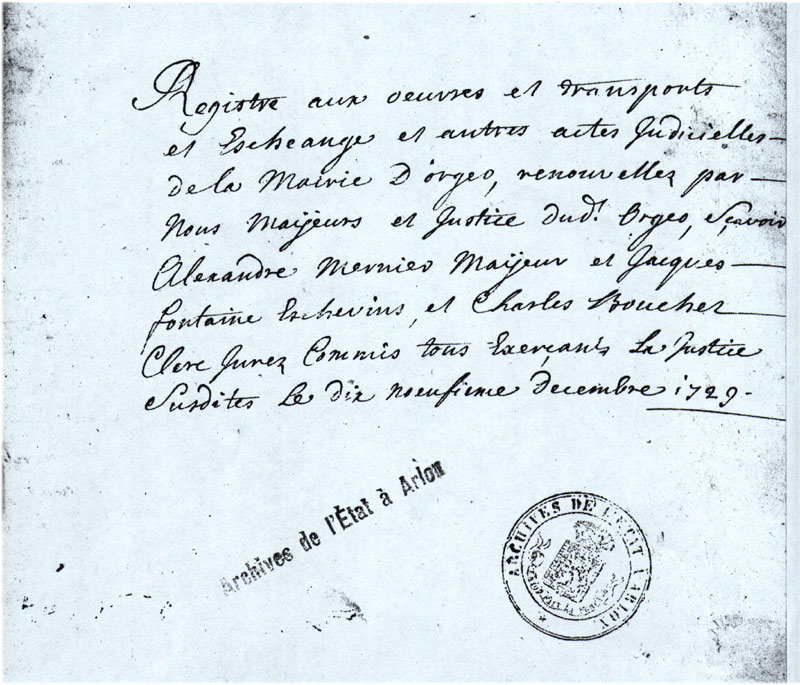 Registre aux oeuvres et transports
et Escheange et autres actes Judicielles
de la Mairie D'orgeo, renouvellez par
Nous Maijeurs et Justice dud.t Orgeo, Sçavoir
Alexandre Mernier Maijeur et Jacques
fontaine Eschevins, et Charles Boucher
Clerc Jurez Commis tous Exerçants La Justice
Susdites Le dix noeufieme Decembre 1729.
Archives de l'État à Arlon
ARCHIVES DE L'ETAT A ARLON